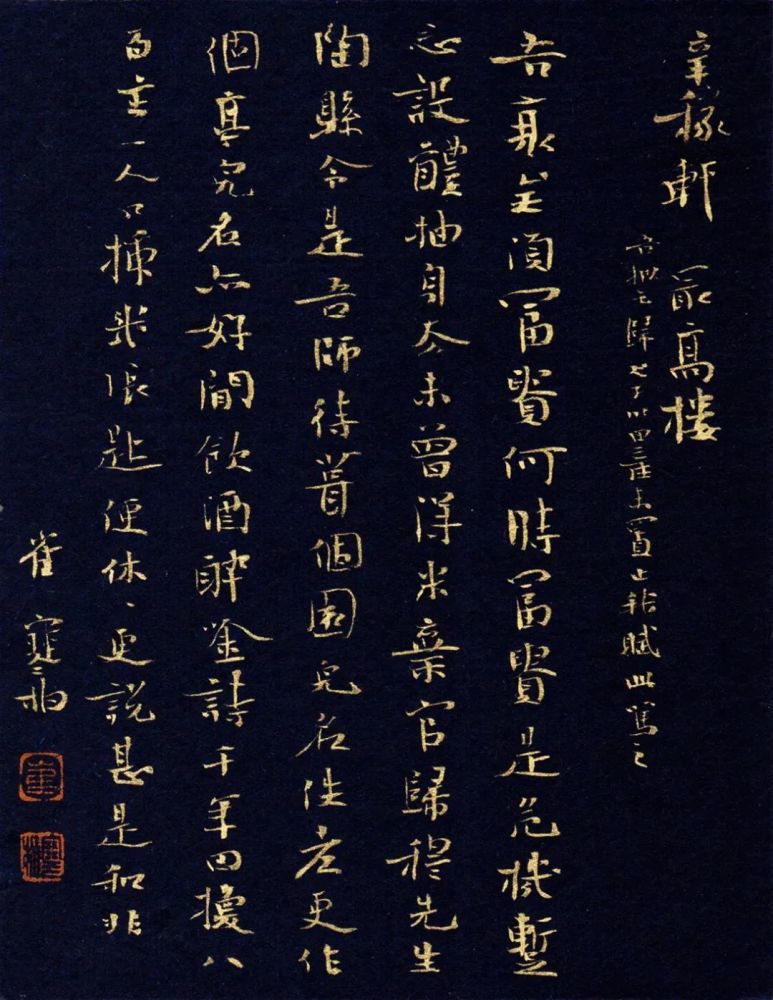 辛稼軒 最高樓
吾擬乞歸犬子以田產未置止我賦此罵之
吾衰矣須富貴何時富貴是危機暫
忘設醴抽身去未曾得米棄官歸穆先生
陶縣令是吾師待葺個園兒名佚老更作
個亭兒名亦好閒飲酒醉吟詩千年田換八
百主一人口插幾張匙便休、更說甚是和非
崔寒柏